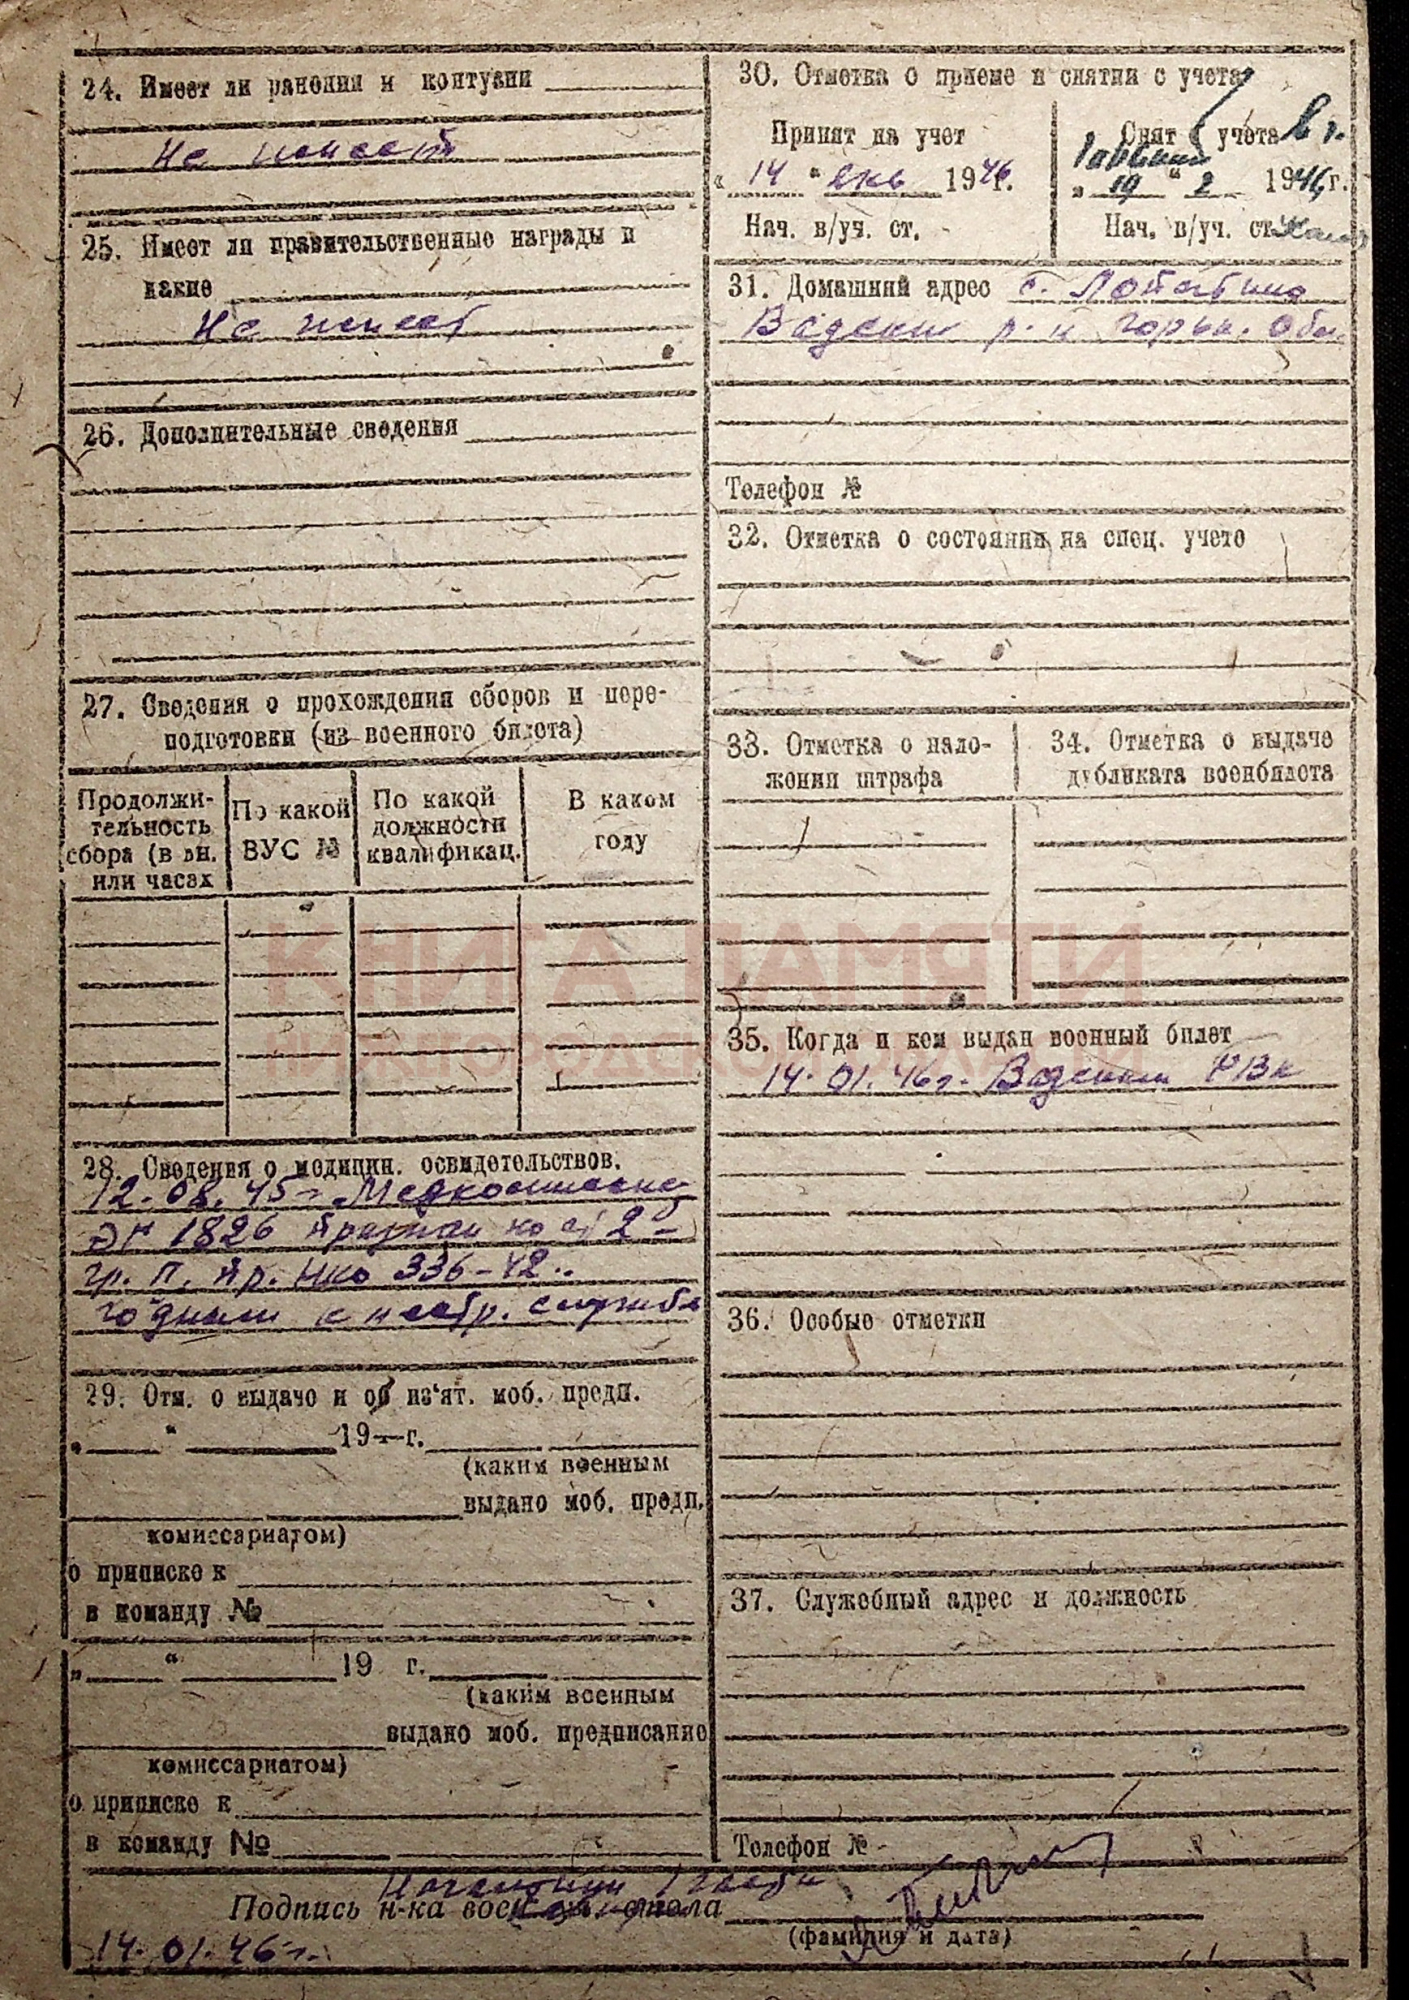 24. Имеет ли ранения и контузии
Не имеет
25. Имеет ли правительственные награды и
какие
Не имеет
26. Дополнительные сведения
27. Сведения о прохождении сборов и пере-
подготовки (из военного билета)
Продолжи-
тельность
сбора (в дн.
или часах
По какой
ВУС №
По какой
должности
квалификац.
В каком
году
28. Сведения о медицин. освидетельствов.
12.08.45 г. Медкомиссией
ЭГ 1826 признан по ст 2-б
гр. II. пр. НКО 336-42.
годным к нестр. службе
29. Отм. о выдаче и об из'ят. моб. предп.
„ “ 19 г.
(каким военным
выдано моб. предп.
комиссариатом)
о приписке к
в команду №
„ “ 19 г.
(каким военным
выдано моб. предписание
комиссариатом)
о приписке к
в команду №
30. Отметка о приеме и снятии с учета
Принят на учет
« 14 “ янв 1946 г.
Нач. в/уч. ст.
Снят с учета в г.
Горький
„ 19 “ 2 1946 г.
Нач. в/уч. ст.
31. Домашний адрес с. Лопатино
Вадский р-н Горьк. обл.
Телефон №
32. Отметка о состоянии на спец. учете
33. Отметка о нало-
жении штрафа
34. Отметка о выдаче
дубликата военбилета
35. Когда и кем выдан военный билет
14.01.46 г. Вадским РВК
36. Особые отметки
37. Служебный адрес и должность
Телефон №
Начальник 1 части
Подпись н-ка воен.-уч. стола
(фамилия и дата)
14.01.46 г.
КНИГА ПАМЯТИ
НИЖЕГОРОДСКОЙ ОБЛАСТИ